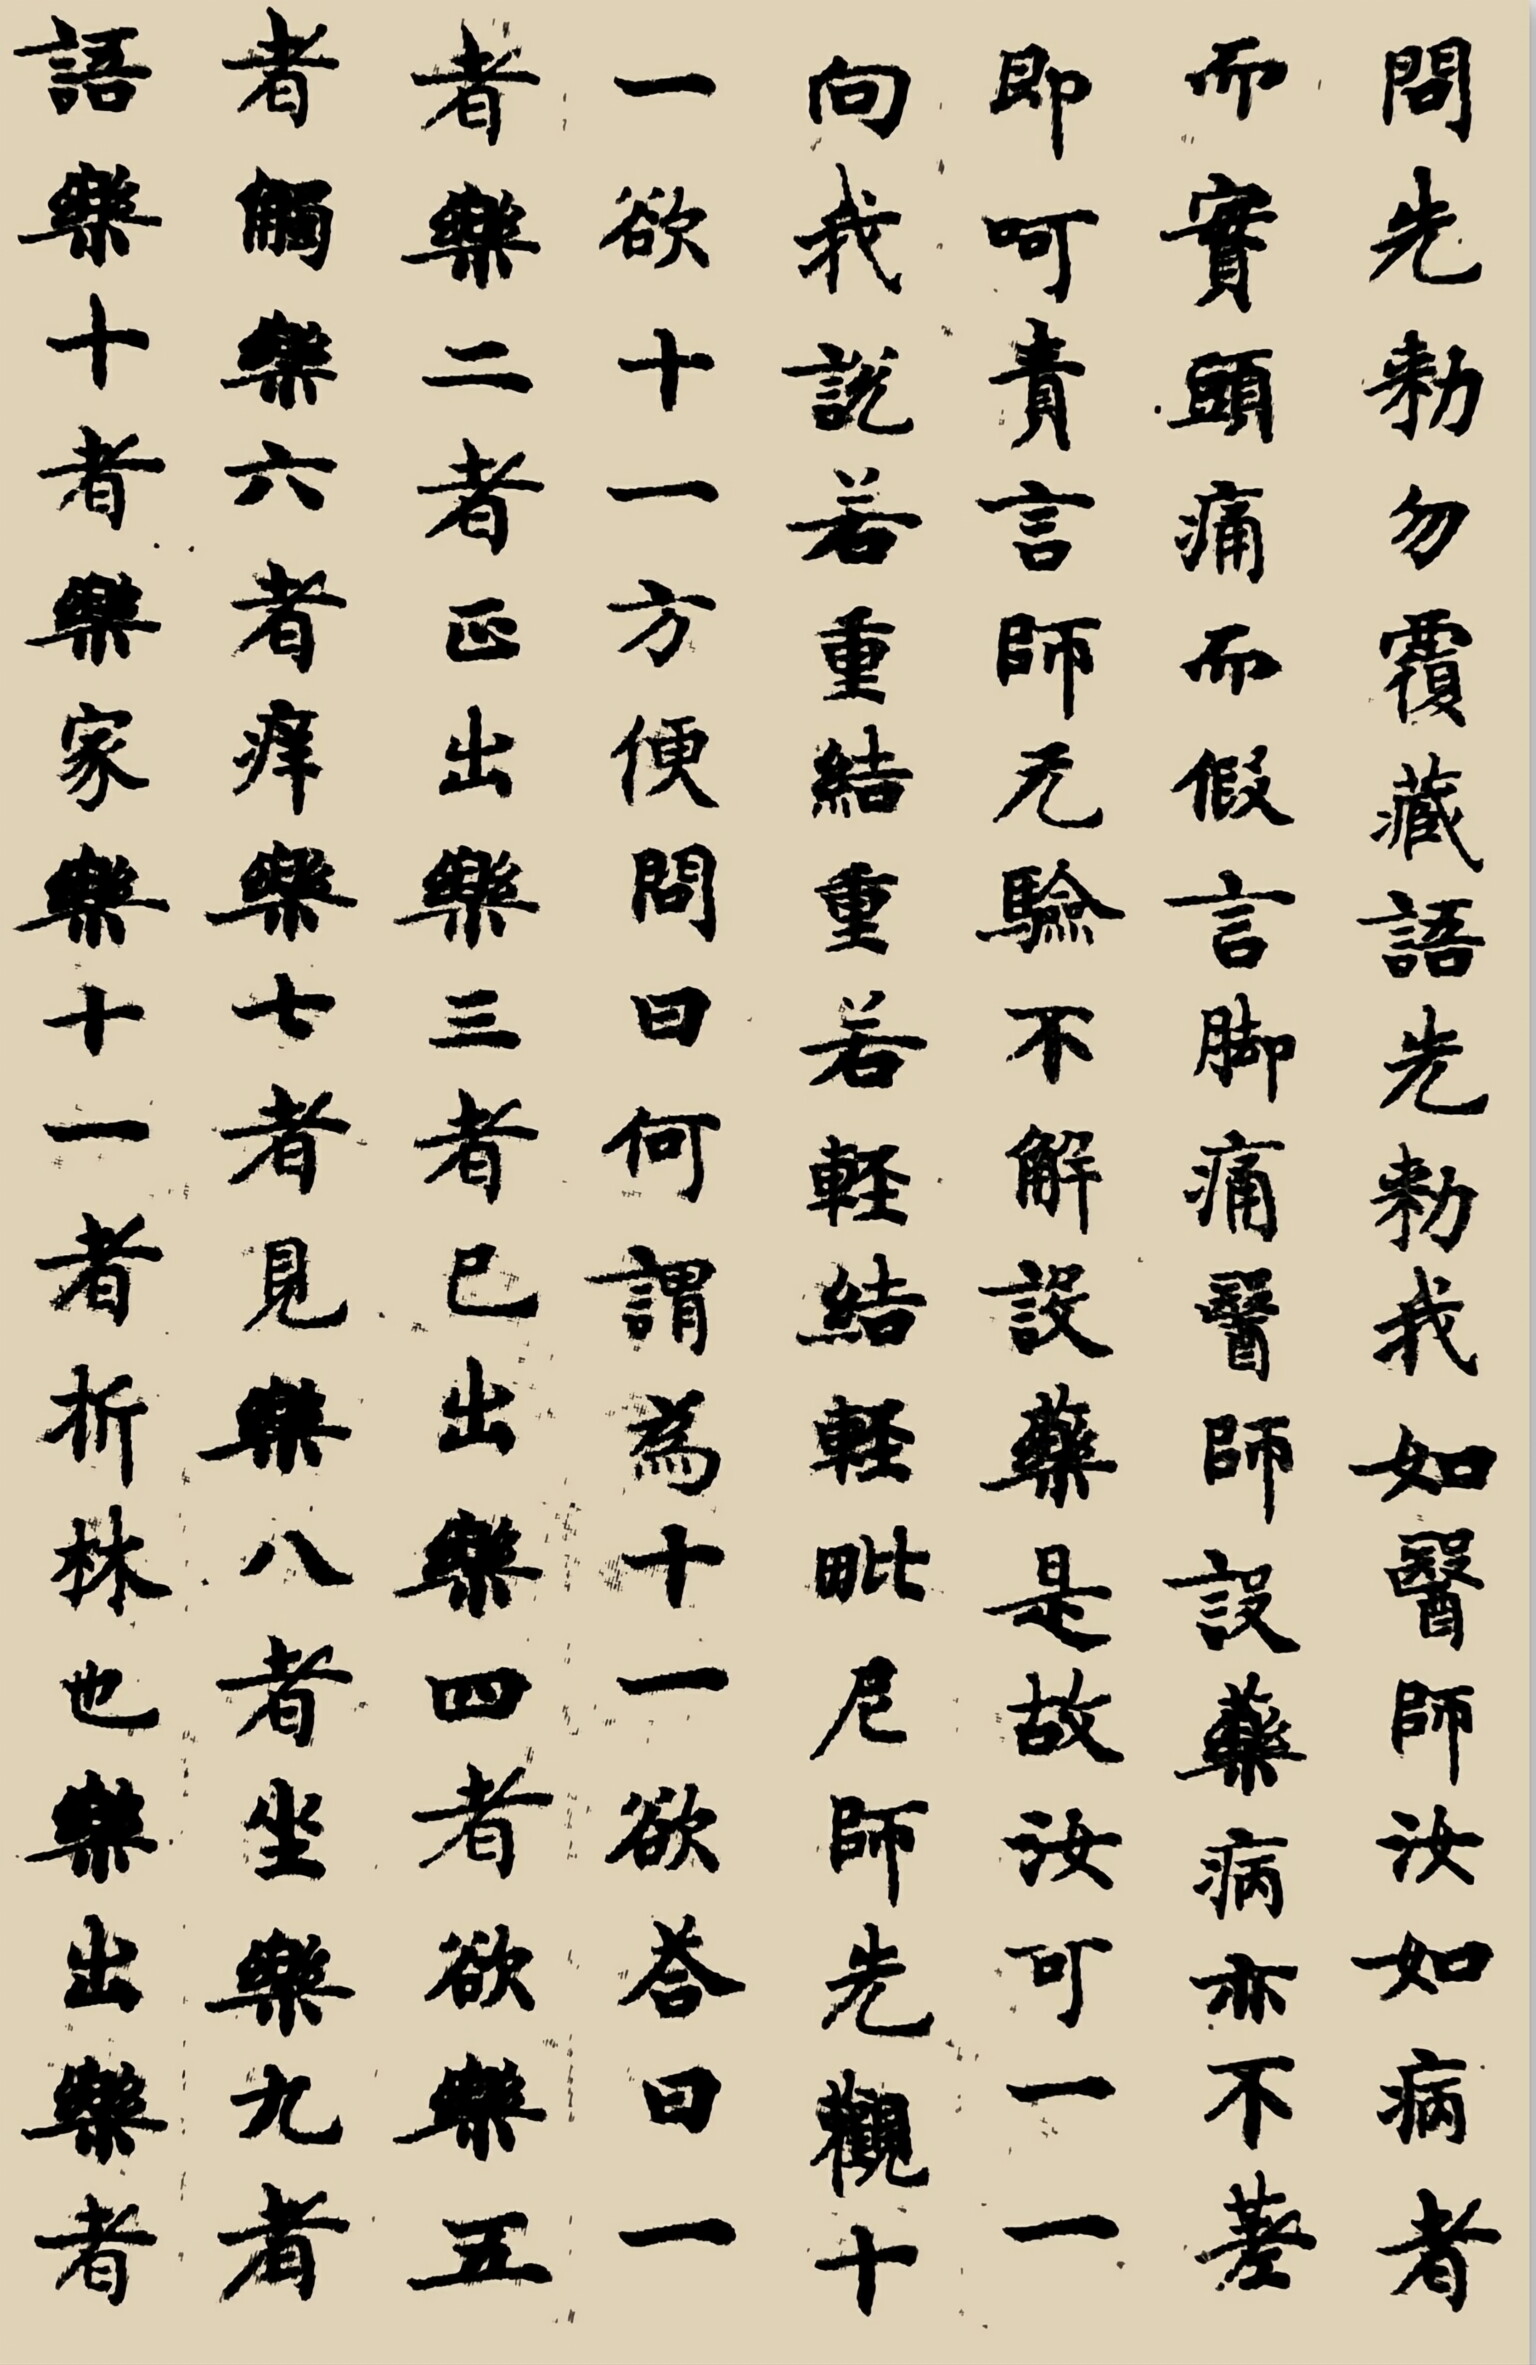 問先勅勿覆藏語先勅我如醫師汝如病者
而實頭痛而假言脚痛醫師設藥病亦不差
即呵責言師无驗不解設藥是故汝可一一
向我説若重結重若軽結軽毗尼師先觀十
一欲十一方便問曰何謂為十一欲荅曰一
者樂二者正出樂三者已出樂四者欲樂五
者觸樂六者痒樂七者見樂八者坐樂九者
語樂十者樂家樂十一者折林也樂出樂者